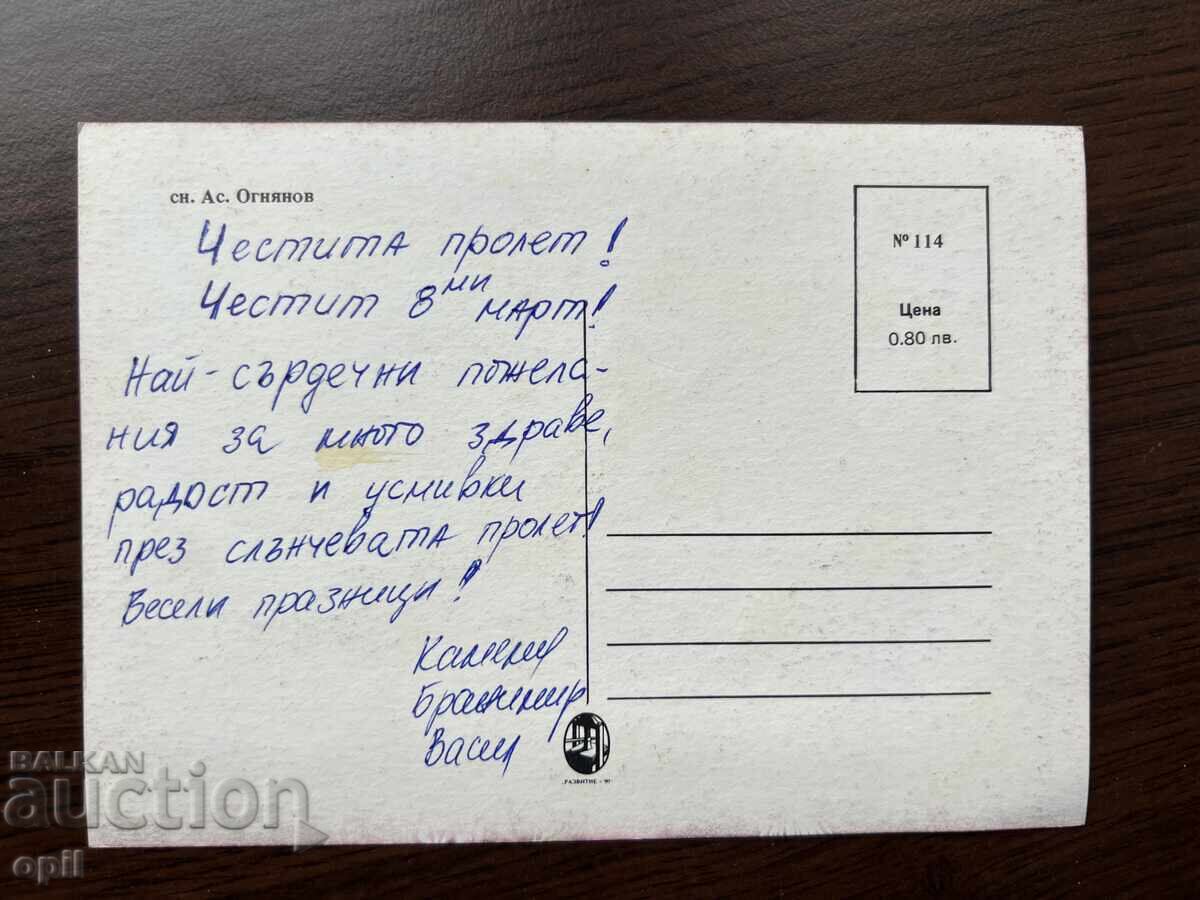 сн. Ас. Огнянов
Честита пролет!
Честит 8ми март!
Най-сърдечни пожела-
ния за много здраве,
радост и усмивки
през слънчевата пролет!
Весели празници!
Бранимир
Васил
№ 114
Цена
0.80 лв.
„РАЗВИТИЕ - 90"
BALKAN
auction
opil